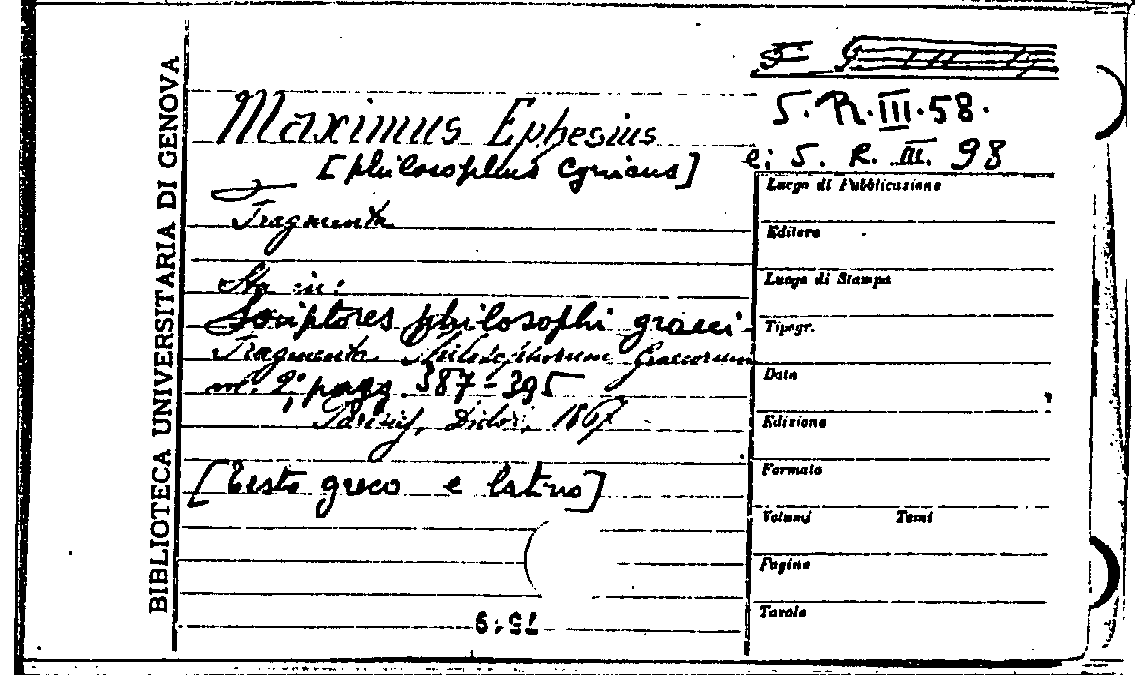 BIBLIOTECA UNIVERSITARIA DI GENOVA
S. R. III. 58.
e; S. R. III. 98
Maximus Ephesius
[philosophus Cynicus]
Fragmenta
Sta in:
Scriptores philosophi graeci-
Fragmenta Philosophorum Graecorum
pagg. 387-395
Parisiis, Didot, 1867
[Testo greco e latino]
Luogo di Pubblicazione
Editore
Luogo di Stampa
Tipogr.
Data
Edizione
Formato
Volumi Tomi
Pagine
Tavole